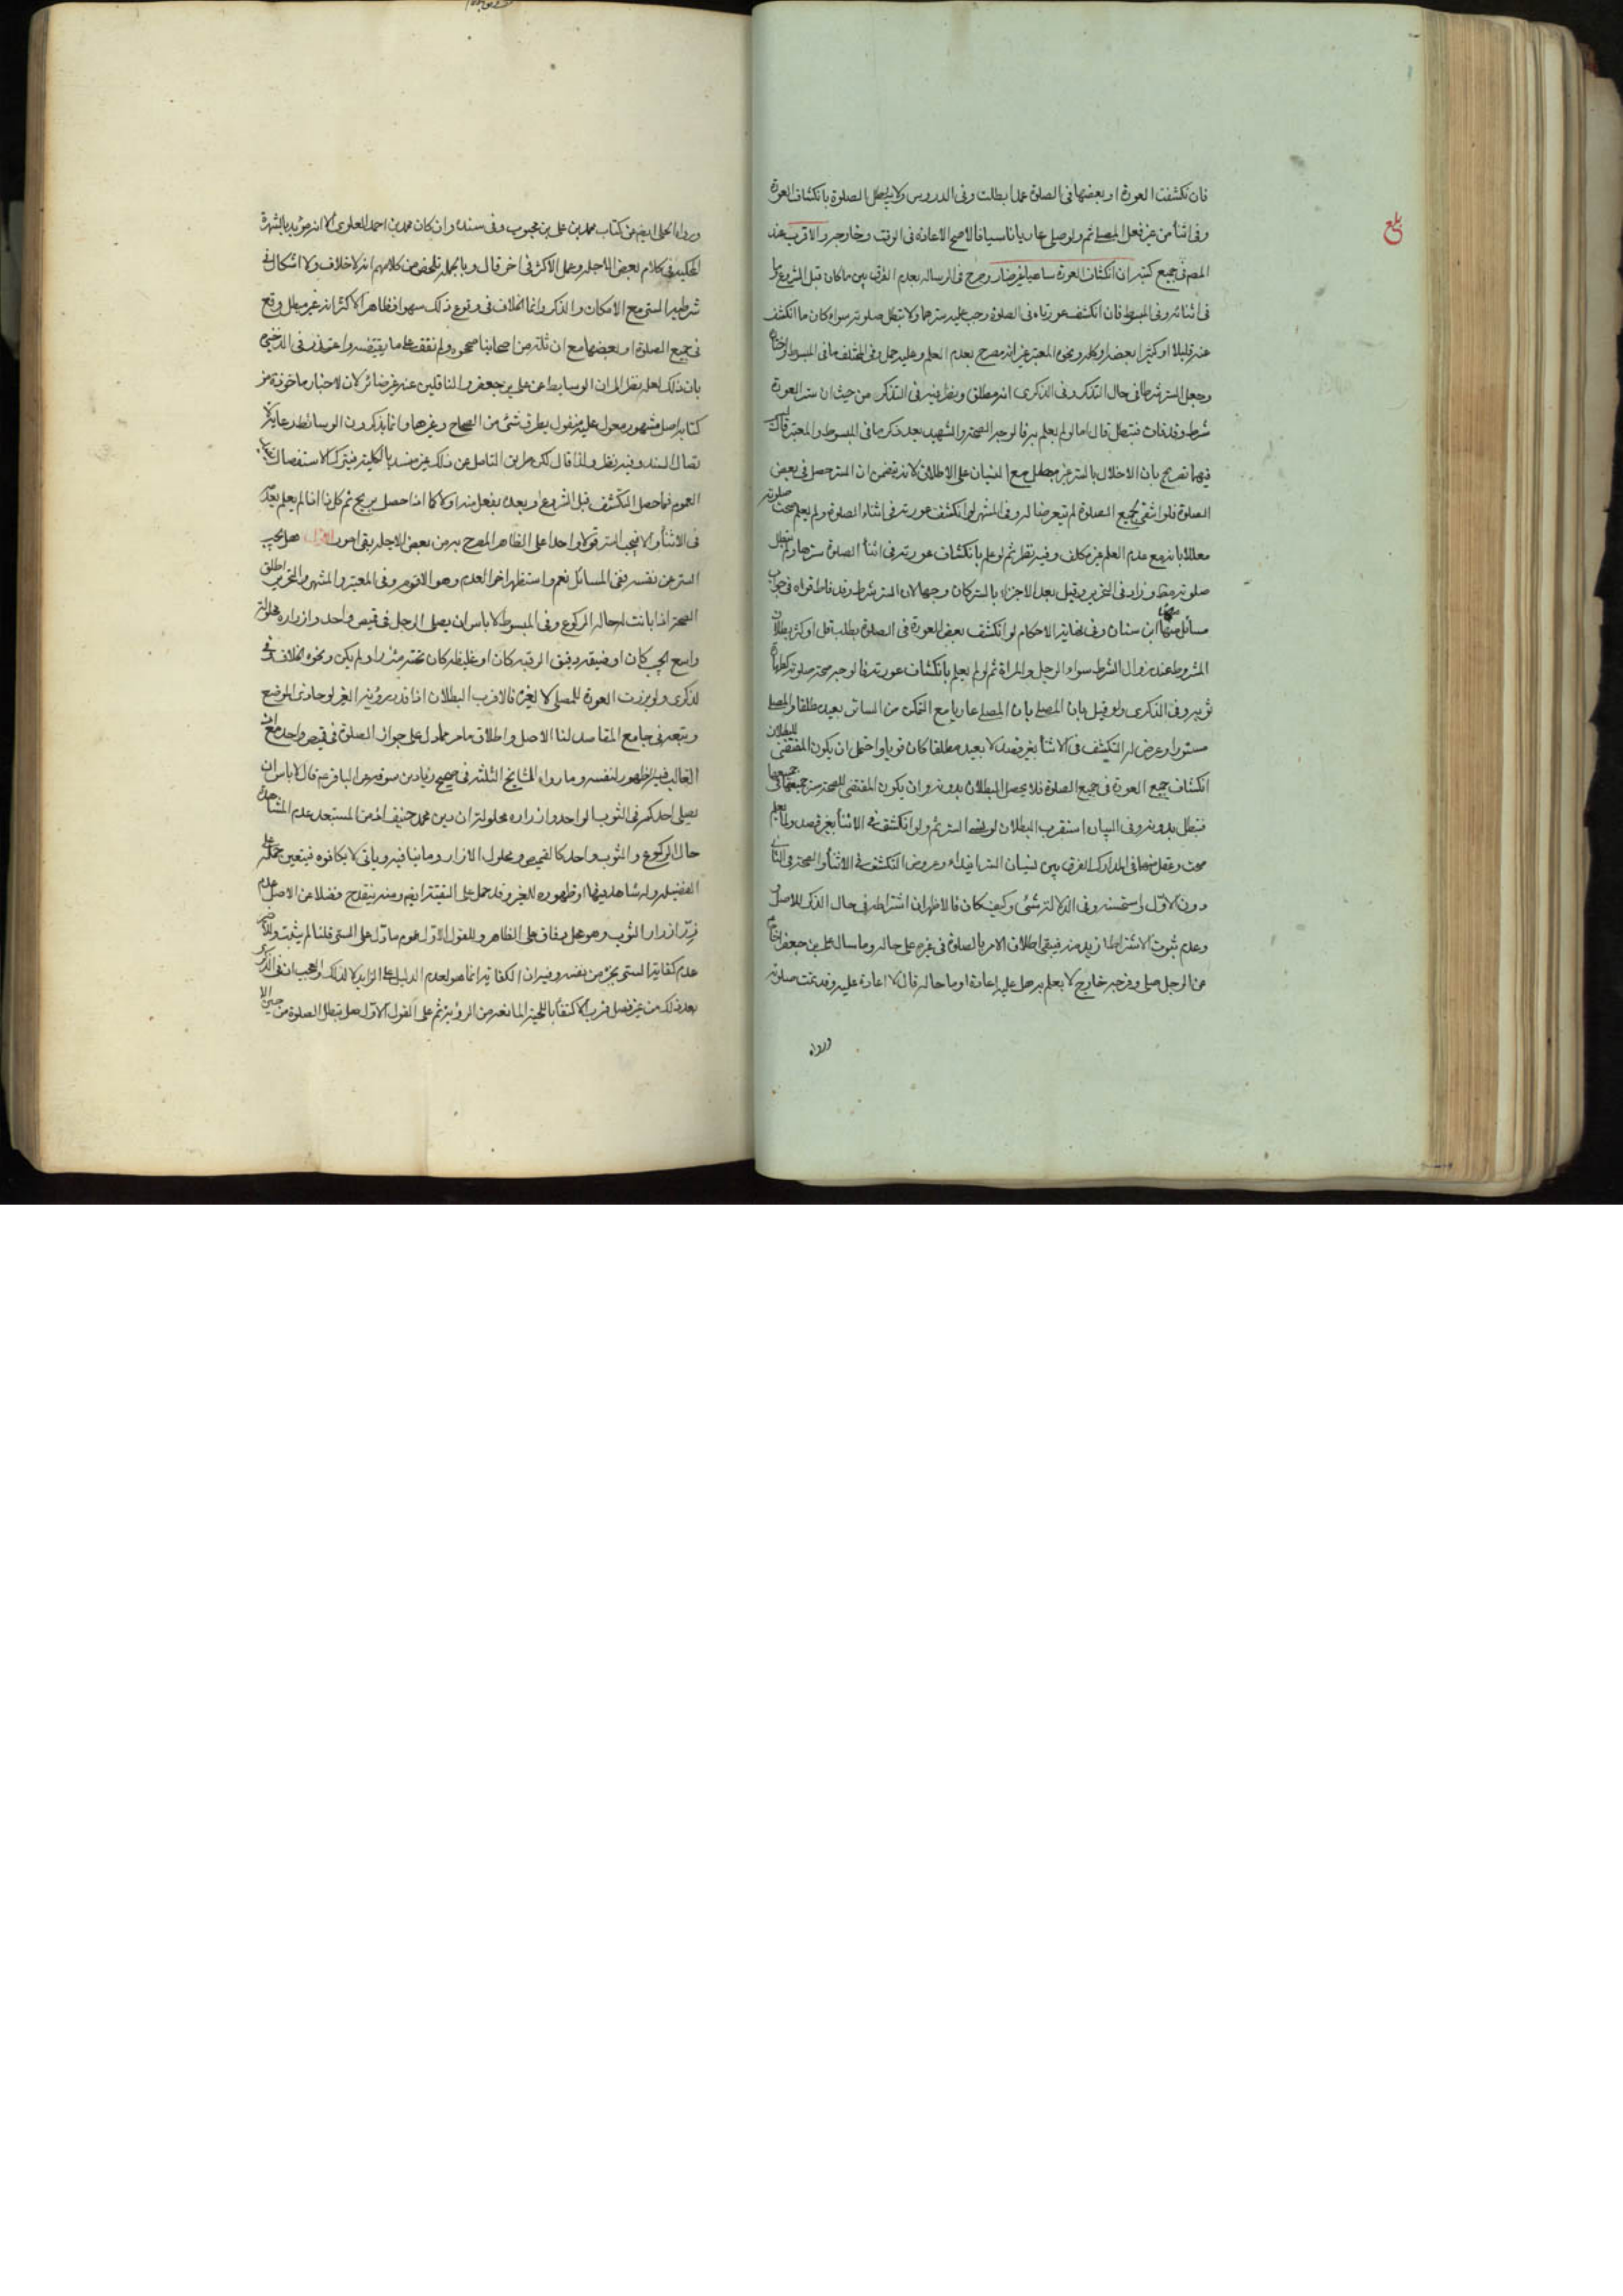 فان تكشفت العورة او بعضها فى الصلوة عمدا بطلت وفى الدروس ولا يبطل الصلوة بانكشاف العورة
وفى اثنا من غير فعل المصلى ثم ولو صلى عاريا ناسيا فالاصح الاعادة فى الوقت وخارجه والاقرب عند
بلغ
المص فى جميع كتبه ان انكشاف العورة ساهيا غير ضار وصرح فى الرساله بعدم الفرق بين ما كان قبل الشروع
فى اثنائه وفى المبسوط فان انكشف عورتاه فى الصلوة وجب عليه سترهما ولا تبطل صلوته سواء كان ما انكشف
عنه قليلا او كثيرا بعضه او كله ونحوه المعتبر غير انه مصرح بعدم العلم وعليه حمل وفى المختلف ما فى المبسوط
وجعل الستر شرطا فى حال التذكر وفى الذكرى انه مطلق وينظر فيه فى التذكر من حيث ان ستر العورة
شرط وقد فات فتبطل قال اما لو لم يعلم به فالوجه الصحة والشهيد بعد ذكر ما فى المبسوط والمعتبر قال
فيهما تصريح بان الاخلال بالستر غير مبطل مع النسيان على الاطلاق لانه يتضمن ان الستر حصل فى بعض
الصلوة فلو انتفى جميع الصلوة لم يتعرضا له وفى المنتهى لو انكشف عورته فى اثناء الصلوة ولم يعلم صحت صلوته
معللا بانه مع عدم العلم غير مكلف وفيه نظر ثم لو علم بانكشاف عورته فى اثنأ الصلوة سترها ولم تبطل
صلوته وزاد فى التحرير وقيل بعد الاجزاء بالستر كان وجها لان الستر شرط وقد فات
مسائل ابن سنان وفى نهاية الاحكام لو انكشف بعض العورة فى الصلوة بطلت قل او كثر بطلان
المشروط عند زوال الشرط سواء الرجل والمراة ثم ولو لم يعلم بانكشاف عورته فالوجه صحة صلوته
ثوبه وفى الذكرى ولو قيل بان المصلى عاريا مع التمكن من الساتر يعيد مطلقا والمصلى
مستورا وعرض له التكشف فى الاثنأ بغير قصد لا يعيد مطلقا كان قويا واحتمل ان يكون المقتضى للبطلان
انكشاف جميع العورة فى جميع الصلوة فلا يحصل البطلان بدونه وان يكون المقتضى للصحة ستر جميعها
فتبطل بدونه وفى البيان استقرب البطلان لو نسى الستر ثم ولو انكشف فى الاثنأ بغير قصد ولما يعلم
صحت وعقل منها فى المدارك الفرق بين نسيان الستر ابتداء وعروض التكشف فى الاثنأ والصحة فى الثانى
دون الاول واستحسنه وفى الدلالة شئ وكيف كان فالاظهر ان اشتراطه فى حال الذكر للاصل
وعدم ثبوت الاشتراط ازيد منه فيبقى اطلاق الامر بالصلوة فى غيره على حاله وما سال على بن جعفر اخاه
عن الرجل صلى وفرجه خارج لا يعلم به هل عليه اعادة او ما حاله قال لا اعادة عليه وقد تمت صلوته
ورواه
ورواه الحلى ايضا من كتاب محمد بن على بن محبوب وفى سنده وان كان محمد بن احمد العلوى الا انه مؤيد بالشهرة
المحكية فى كلام بعض الاجلة وعمل الاكثر فى اخر قال وبالجملة تلخص من كلامهم انه لا خلاف ولا اشكال فى
شرطية الستر مع الامكان والذكر وانما الخلاف فى وقوع ذلك سهوا فظاهر الاكثر انه غير مبطل وقع
فى جميع الصلوة او بعضها مع ان ثلثة من اصحابنا صححوه ولم نقف على ما يقتضيه واعتذر فى الذخيرة
بان ذلك لعله نظرا الى ان الوسايط عن على بن جعفر والناقلين عنه غير ضائر لان الاخبار ماخوذة من
كتابه اصل مشهور معول عليه منقول بطرق شتى من الصحاح وغيرها وانما يذكرون الوسائط رعاية
اتصال السند وفيه نظر ولذا قال لكن طريق التامل عن ذلك غير منسد بالكلية فبترك الاستفصال
العموم فيما حصل التكشف قبل الشروع او بعده بفعل منه او لا كما اذا حصل بريح ثم كل ذا اذا لم يعلم بعد
فى الاثنأ والا فيجب الستر قولا واحدا على الظاهر المصرح به من بعض الاجلة بقى امور الاول هل يجب
الستر عن نفسه ففى المسائل نعم واستظهر اخر العدم وهو الاقوم وفى المعتبر والمنتهى والتحرير اطلق
الصحة اذا بانت له حالة الركوع وفى المبسوط لا باس ان يصلى الرجل فى قميص واحد وازراره محلولة
واسع الجيب كان او ضيقه دقيق الرقبة كان او غليظه كان تحته مئزر او لم يكن ونحوه الخلاف وفى
الذكرى ولو برزت العورة للمصلى لا لغيره فالاقرب البطلان اذا قدر رؤية الغير لو حاذى الموضع
وتبعه فى جامع المقاصد لنا الاصل واطلاق ما مر مما دل على جواز الصلوة فى قميص واحد مع ان
الغالب فيه الظهور لنفسه وما رواه المشايخ الثلثة فى صحيح زياد بن سوقه عن الباقر ع قال لا باس ان
يصلى احدكم فى الثوب الواحد وازراره محلولة ان دين محمد حنيف اذ من المستبعد عدم المشاهدة
حال الركوع والثوب واحد كالقميص ومحلول الازار وما ينافيه وياتى لا يكافوه فيتعين حمله على
الفضيلة وله شاهد فيها او ظهوره للغير وقد حمل على التقية ايضا ومنه ينقدح فضلا عن الاصل عدم
زر ازرار الثوب وهو محل وفاق على الظاهر وللقول الاول عموم ما دل على الستر قلنا لم يثبت والاصل
عدم كفاية الستر بجزء من نفسه وفيه ان الكفاية انما هو لعدم الدليل على الزايد لا لذلك والعجب ان فى الذكرى
بعد ذلك من غير فصل قرب الاكتفأ باللحية المانعة من الرؤية ثم على القول الاول هل تبطل الصلوة من حين الا